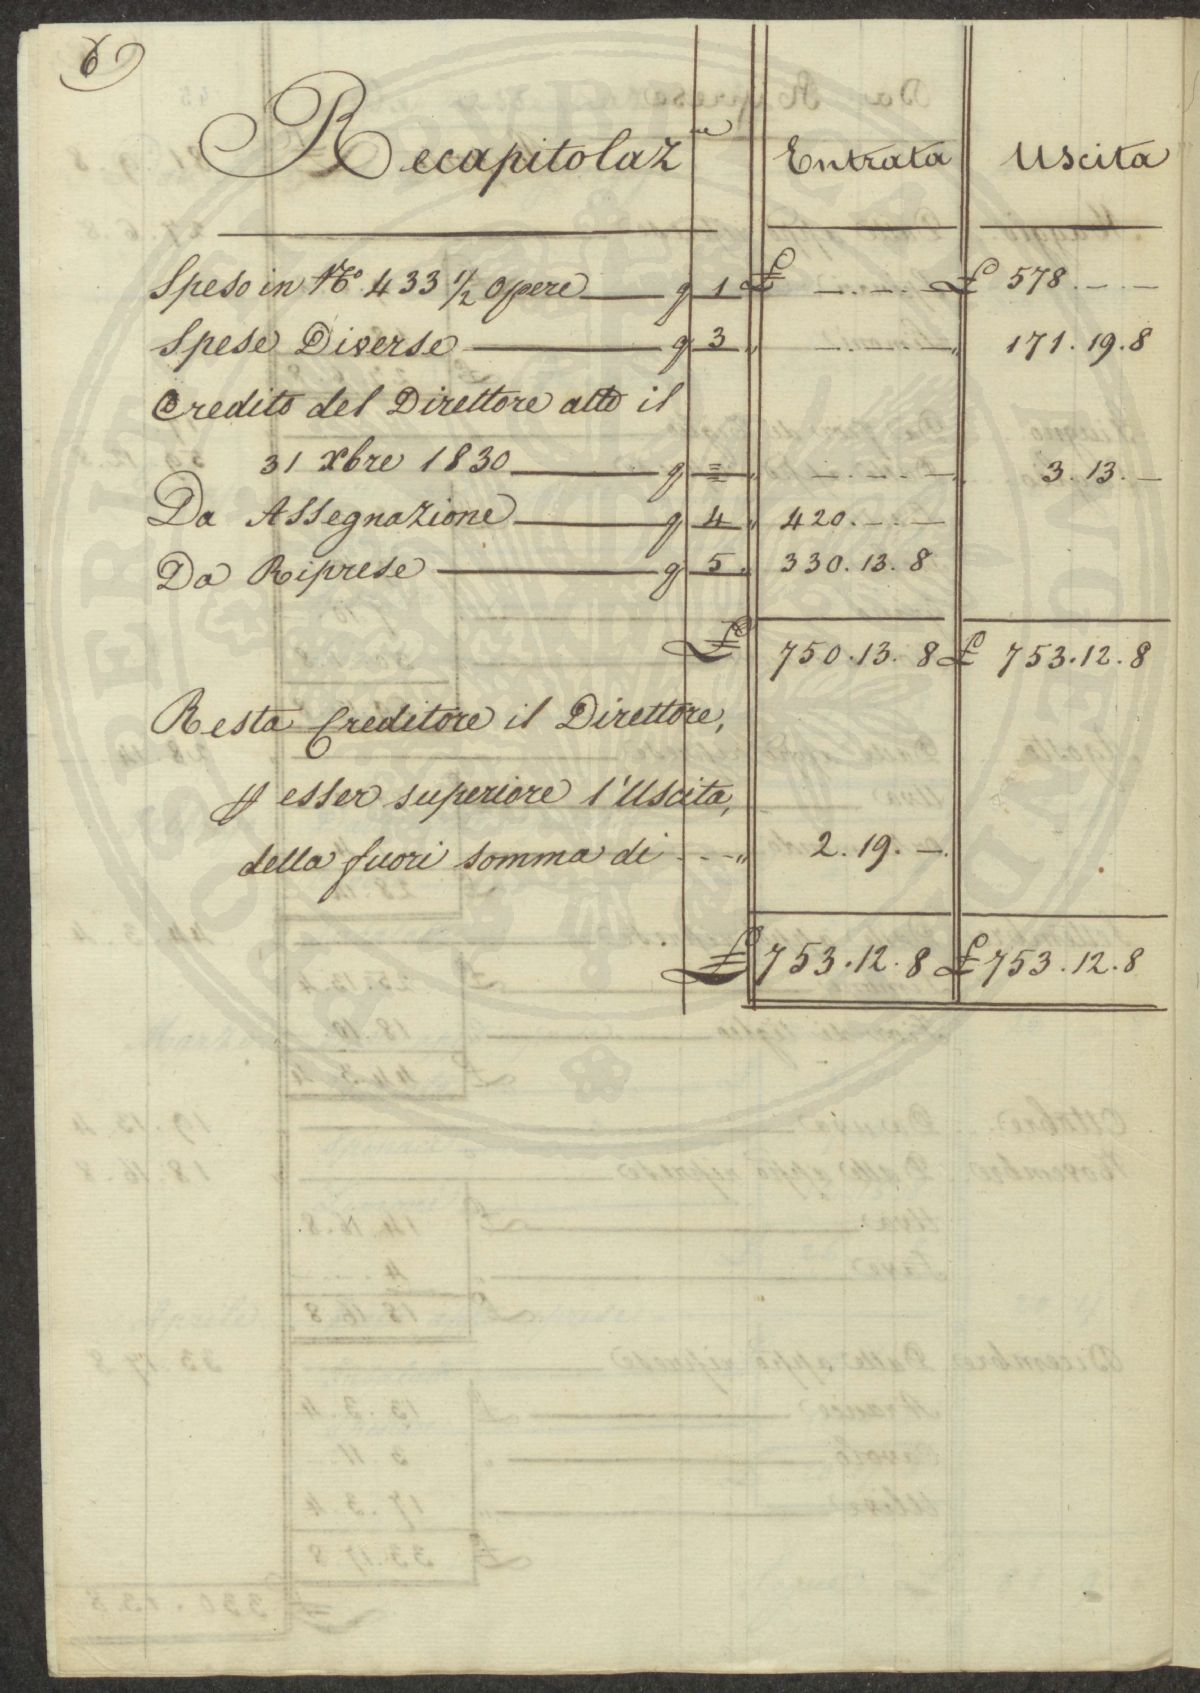 6
Recapitolaz.ne Entrata Uscita
Speso in N.o 433 1/2 Opere p 1 £ -.-.- £ 578.-.-
Spese Diverse p 3 " -.-.- " 171.19.8
Credito del Direttore atto il
31 Xbre 1830 p = " -.-.- " 3.13.-
Da Assegnazione p 4 " 420.-.-
Da Riprese p 5 " 330.13.8
£ 750.13.8 £ 753.12.8
Resta Creditore il Direttore,
p esser superiore l'Uscita,
della fuori somma di - - - " 2.19.-
£ 753.12.8 £ 753.12.8